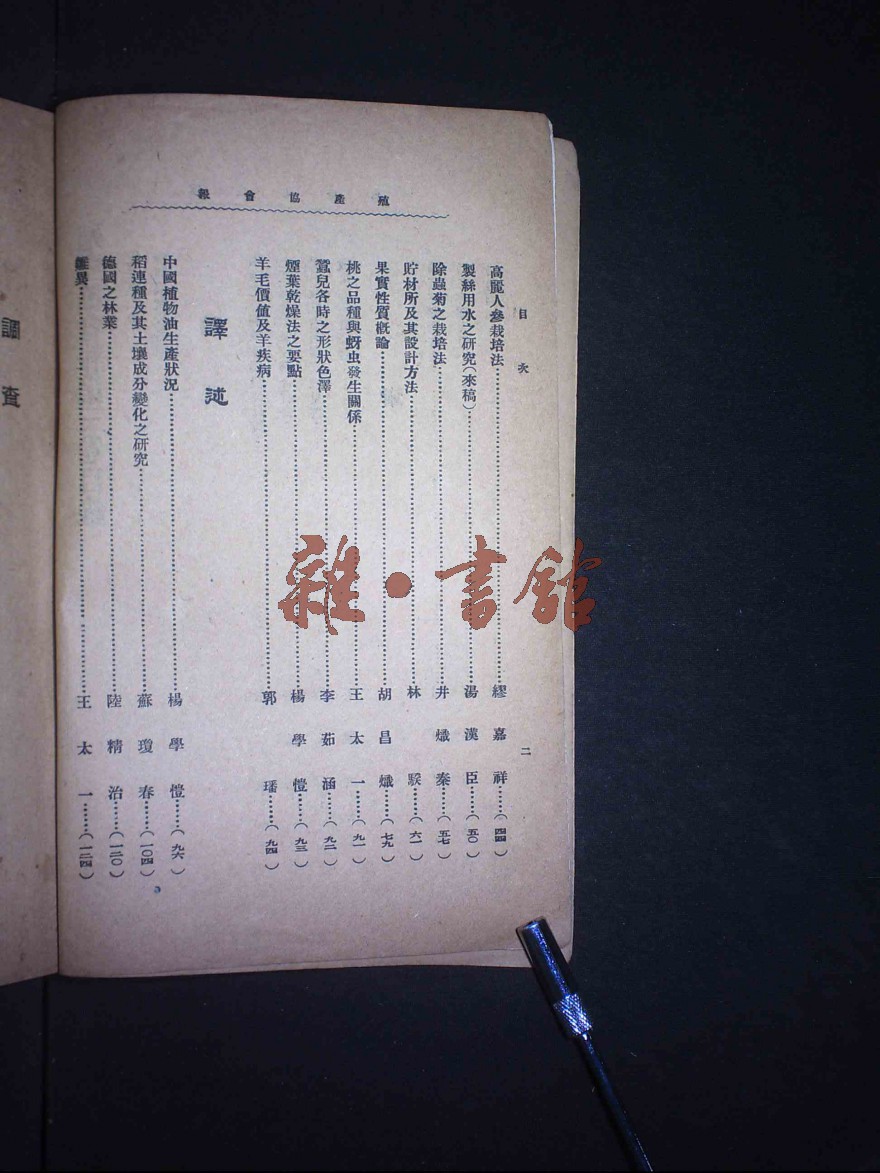 殖產協會報
目次
二
高麗人參栽培法……繆嘉祥……(四四)
製絲用水之研究(來稿)……湯漢臣……(五〇)
除蟲菊之栽培法……井熾秦……(五七)
貯材所及其設計方法……林騤……(六一)
果實性質概論……胡昌熾……(七九)
桃之品種與蚜虫發生關係……王太一……(九一)
蠶兒各時之形狀色澤……李茹涵……(九二)
煙葉乾燥法之要點……楊學愷……(九三)
羊毛價值及羊疾病……郭璠……(九四)
譯述
中國植物油生產狀況……楊學愷……(九六)
稻連種及其土壤成分變化之研究……蘇瓊春……(一〇四)
德國之林業……陸精治……(一二〇)
雛異……王太一……(一二四)
調查
雜·書館